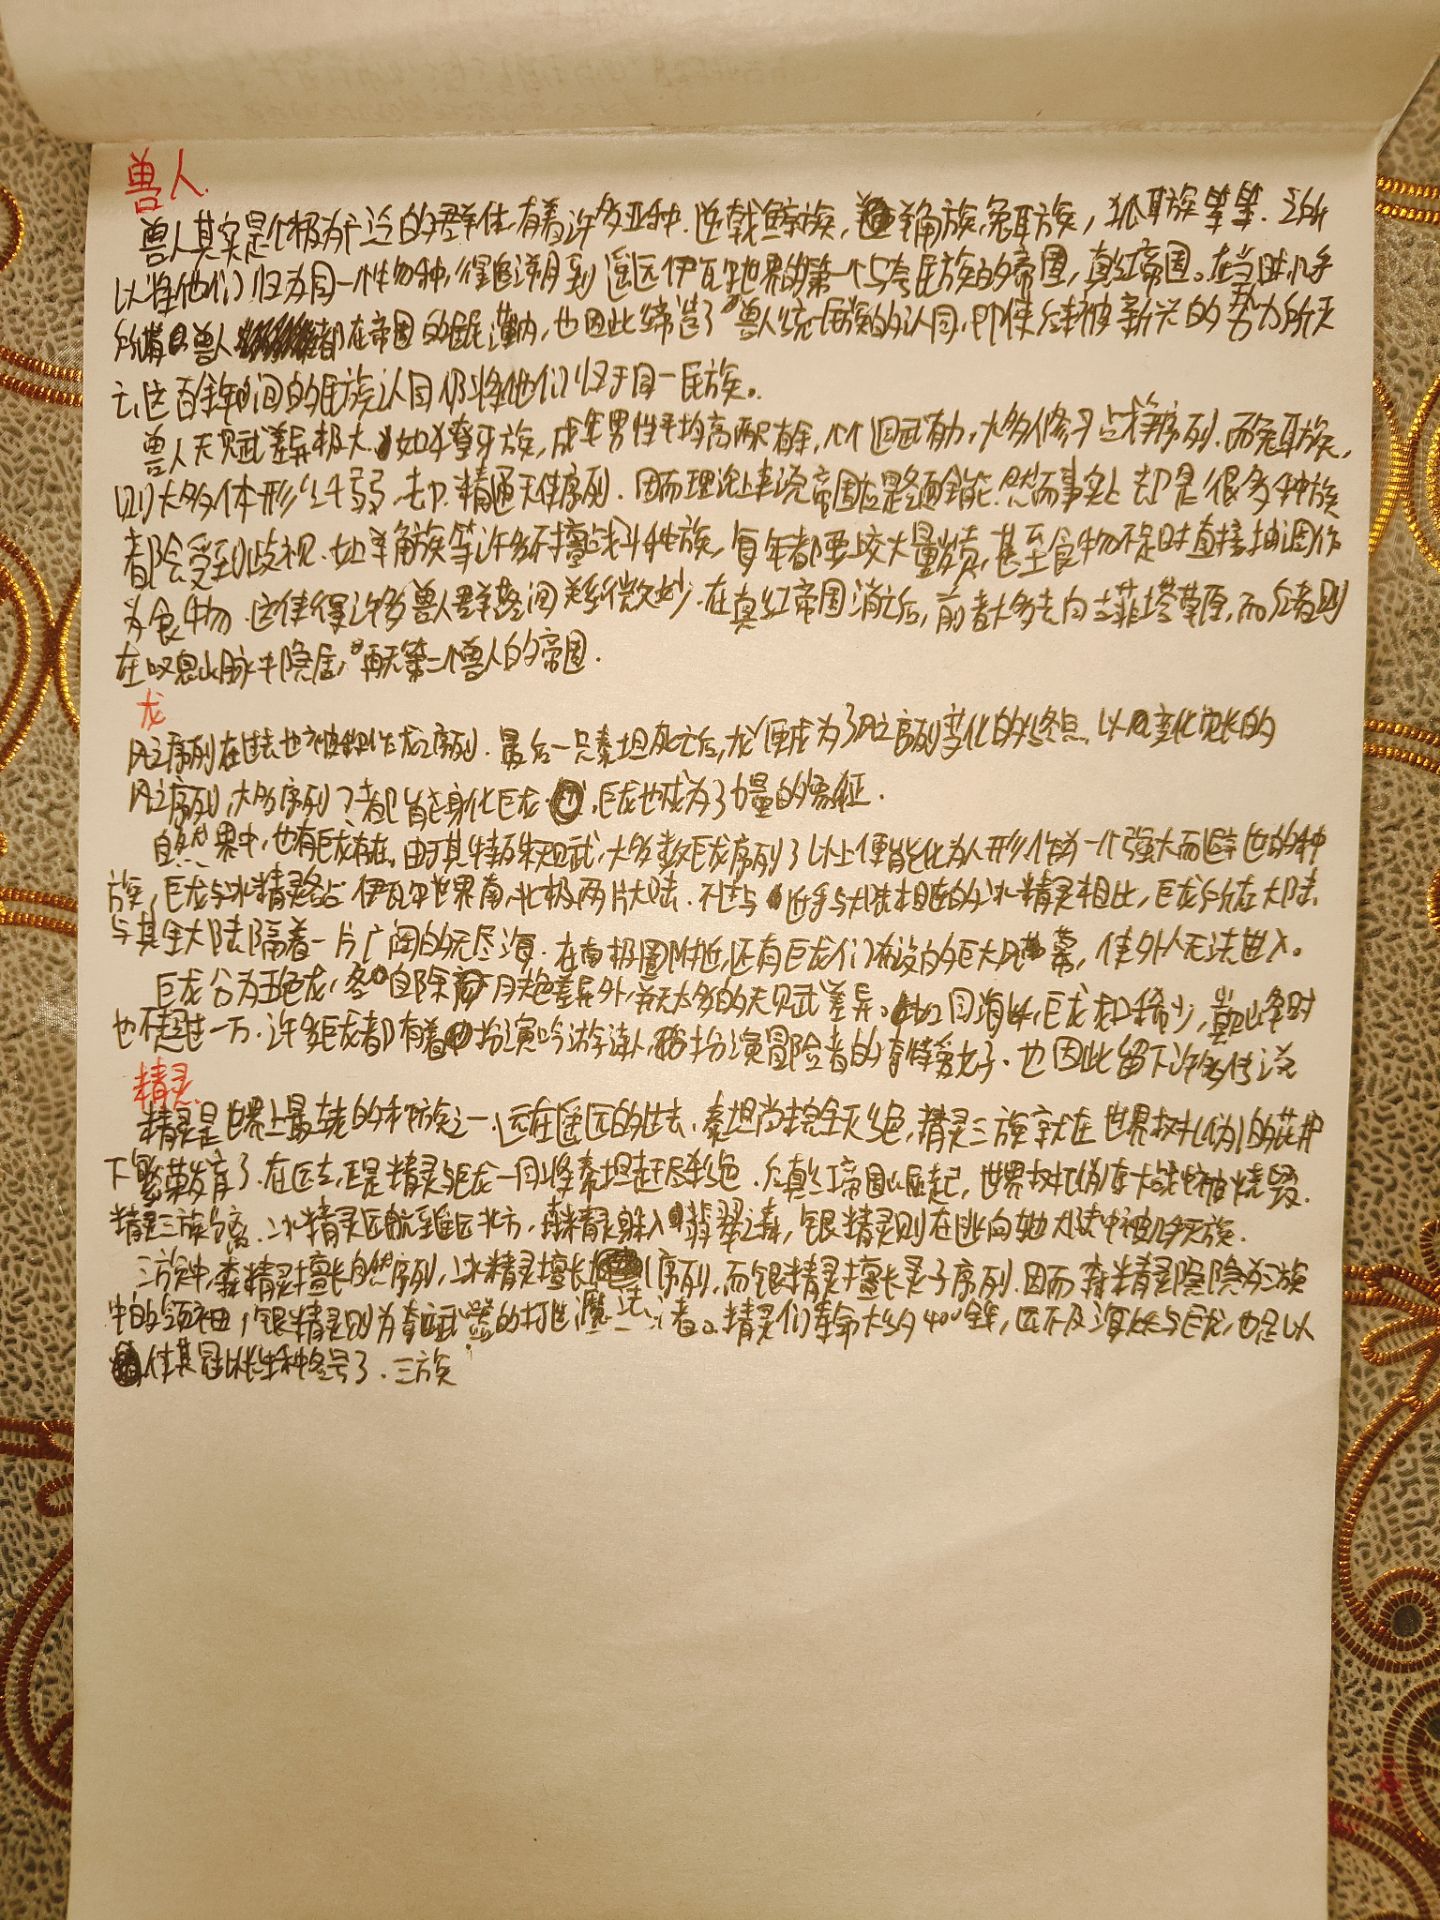 兽人.
兽人其实是个极为广泛的群体,有着许多亚种.逆戟鲸族,羊角族,兔耳族,狐耳族等等.之所
以将他们归为同一性物种,得追溯到遥远伊瓦尔世界的第一个跨民族的帝国,真红帝国。在当时,几乎
所有兽人都在帝国的,也因此缔造了兽人统一民族的认同,即使后来被新兴的势力所灭
亡,这百余年间的民族认同仍将他们归于同一民族。
兽人天赋差异极大.如獠牙族,成年男性平均高两米有余,个个迥武有力,大多修习战争序列.而兔耳族,
则大多体形纤弱,却精通天使序列.因而理论上来说帝国应是全面全能.然而事实上却是很多种族
都会受到歧视.如羊角族等许多不擅战斗种族,每年都要交大量,甚至食物不足时直接抽调作
为食物.这使得许多兽人群落间关系微妙.在真红帝国消亡后,前者大多去向菲塔草原,而后者则
在叹息山脉中隐居,再无第二个兽人的帝国.
龙
风之序列在过去也被称作龙之序列.最后一只泰坦死亡后,龙便成为了风之序列变化的终点.以变化见长的
风之序列,大多序列7者即能身化巨龙.巨龙也成为了力量的象征.
自然界中,也有巨龙存在.由于其特殊天赋,大多数巨龙序列了以上便能化为人形.作为一个强大而避世的种
族,巨龙与冰精灵各占伊瓦尔世界南,北极两片大陆.不过与近乎与大陆相连的冰精灵相比,巨龙所在大陆,
与其余大陆隔着一片广阔的无尽海.在南极圈附近,还有巨龙们布设的巨大风幕,使外人无法进入。
巨龙分为五色龙,各自除颜色差异外,并无太多的天赋差异。如同海妖,巨龙龙口稀少,巅峰时
也不超过一万.许多巨龙都有着扮演吟游诗人,扮演冒险者的特殊爱好.也因此留下许多传说
精灵.
精灵是世界上最古老的种族之一.远在遥远的过去,泰坦尚未完全灭绝,精灵三族就在世界树(伪)的庇护
下繁荣发育了.在过去,正是精灵与巨龙一同将泰坦赶尽杀绝.后真红帝国崛起,世界树(伪)在大战中被烧毁.
精灵三族分离.冰精灵远航至遥远北方,森精灵躲入翡翠之森,银精灵则在逃向大陆中被几乎灭族.
三族中,森精灵擅长自然序列,冰精灵擅长序列,而银精灵擅长灵子序列.因而森精灵隐隐为三族
中的领袖,银精灵则为武器的打造,魔法者。精灵们寿命大约400余年,远不及海妖与巨龙,也足以
使其冠以长生种名号了.三族